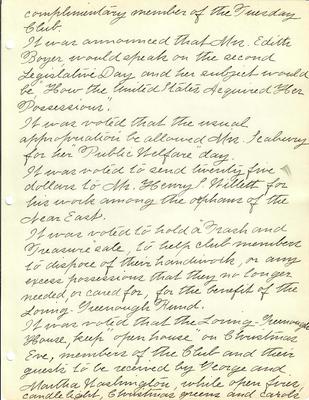 complimentary member of the Tuesday
Club.
It was announced that Mrs. Edith
Boyer would speak on the second
Legislative Day and her subject would
be "How the United States Acquired Her
Possessions".
It was voted that the usual
appropriation be allowed Mrs. Seabury
for her "Public Welfare" day.
It was voted to send twenty five
dollars to Mr. Henry S. Willett for
his work among the orphans of the
Near East.
It was voted to hold a Trash and
Treasure sale, to help club members
to dispose of their handiwork, or any
excess possessions that they no longer
needed, or cared for, for the benefit of the
Loring-Greenough Fund.
It was voted that the Loring-Greenough
House, keep "open house" on Christmas
Eve, members of the Club and their
guests to be received by George and
Martha Washington, while open fires,
candlelight, Christmas greens and carols